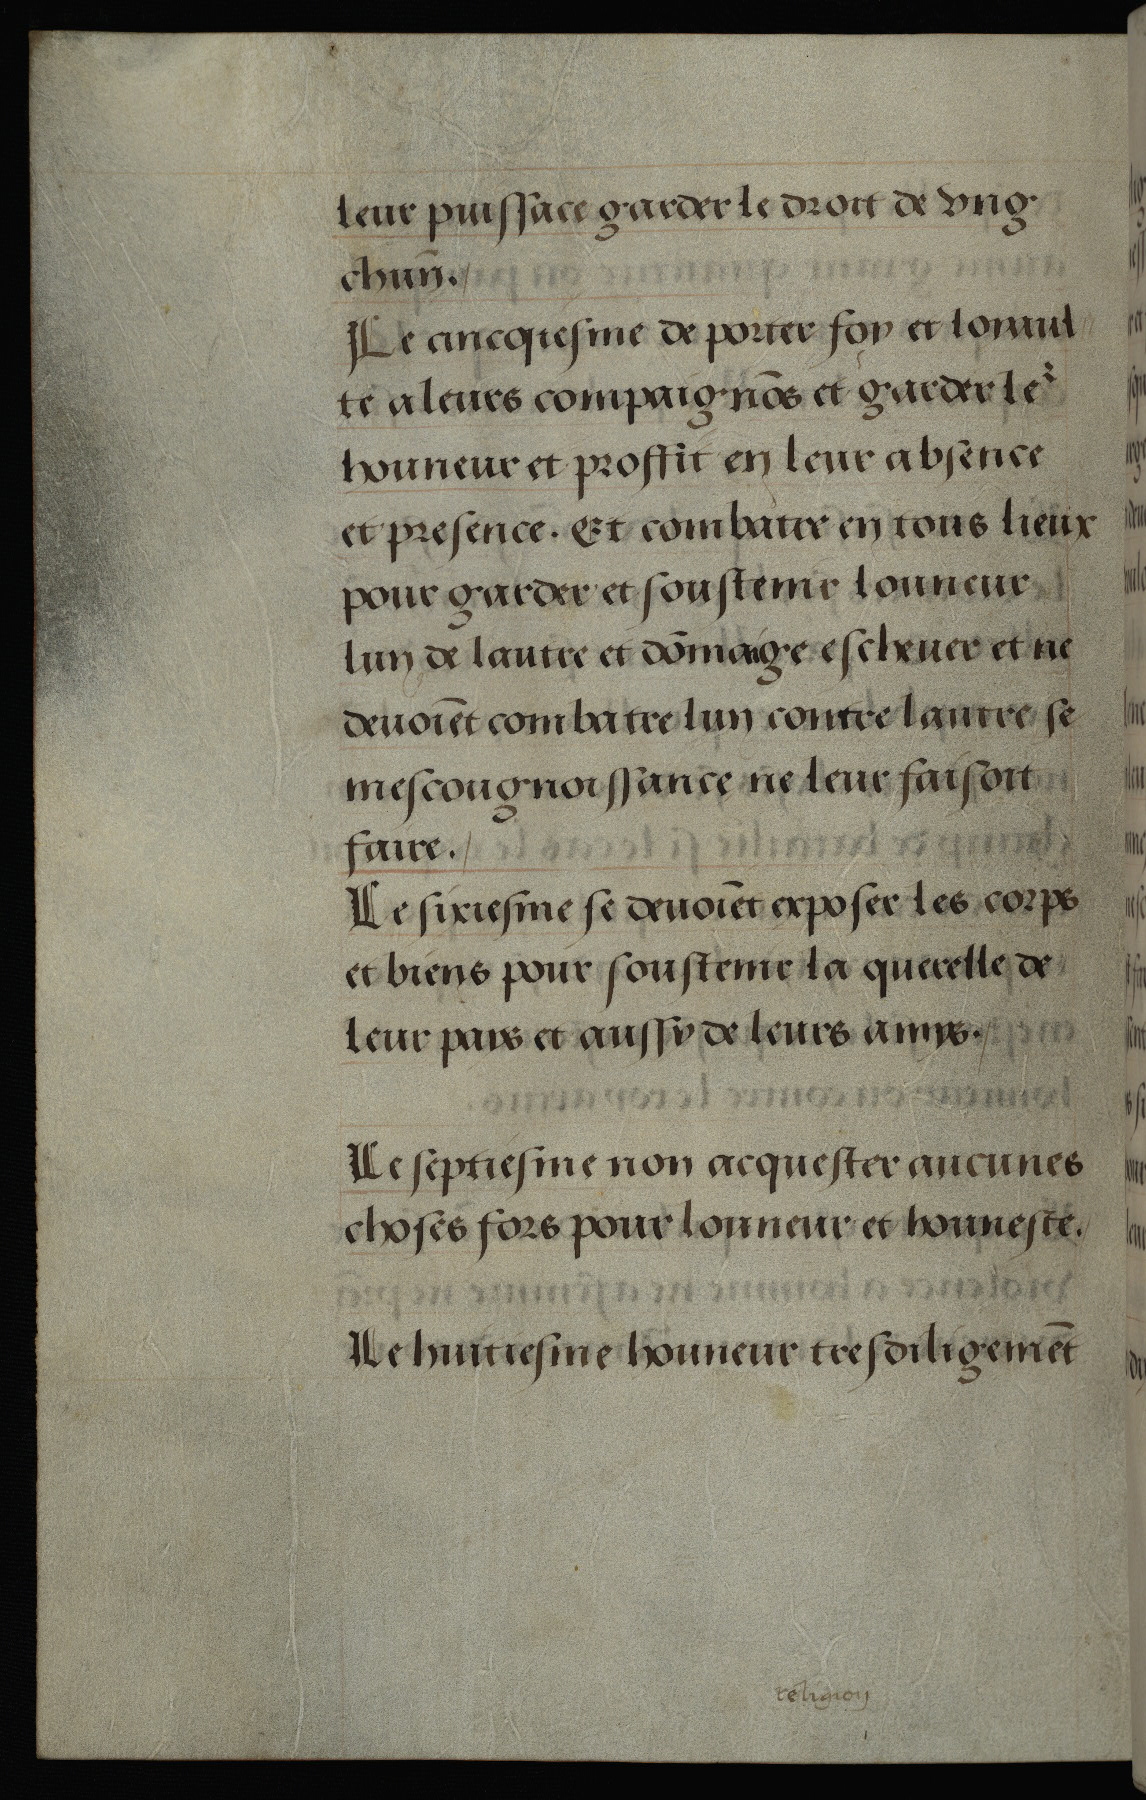 leur puissāce garder le droit de vng
chun̄.
Le cincquiesme de porter foy et loyaul
te a leurs compaignōs et garder leˢ
honneur et proffit en leur absence
et presence. Et combatre en tous lieux
pour garder et soustenir lonneur
lun de lautre et dōmaige escheuer et ne
deuoiēt combatre lun contre lautre se
mescongnoissance ne leur faisoit
faire.
Le sixiesme se deuoiēt exposer les corps
et biens pour soustenir la querelle de
leur pays et aussy de leurs amys.
Le septiesme non acquester aucunes
choses fors pour lonneur et honneste.
Le huitiesme honneur tresdiligemēt
religion